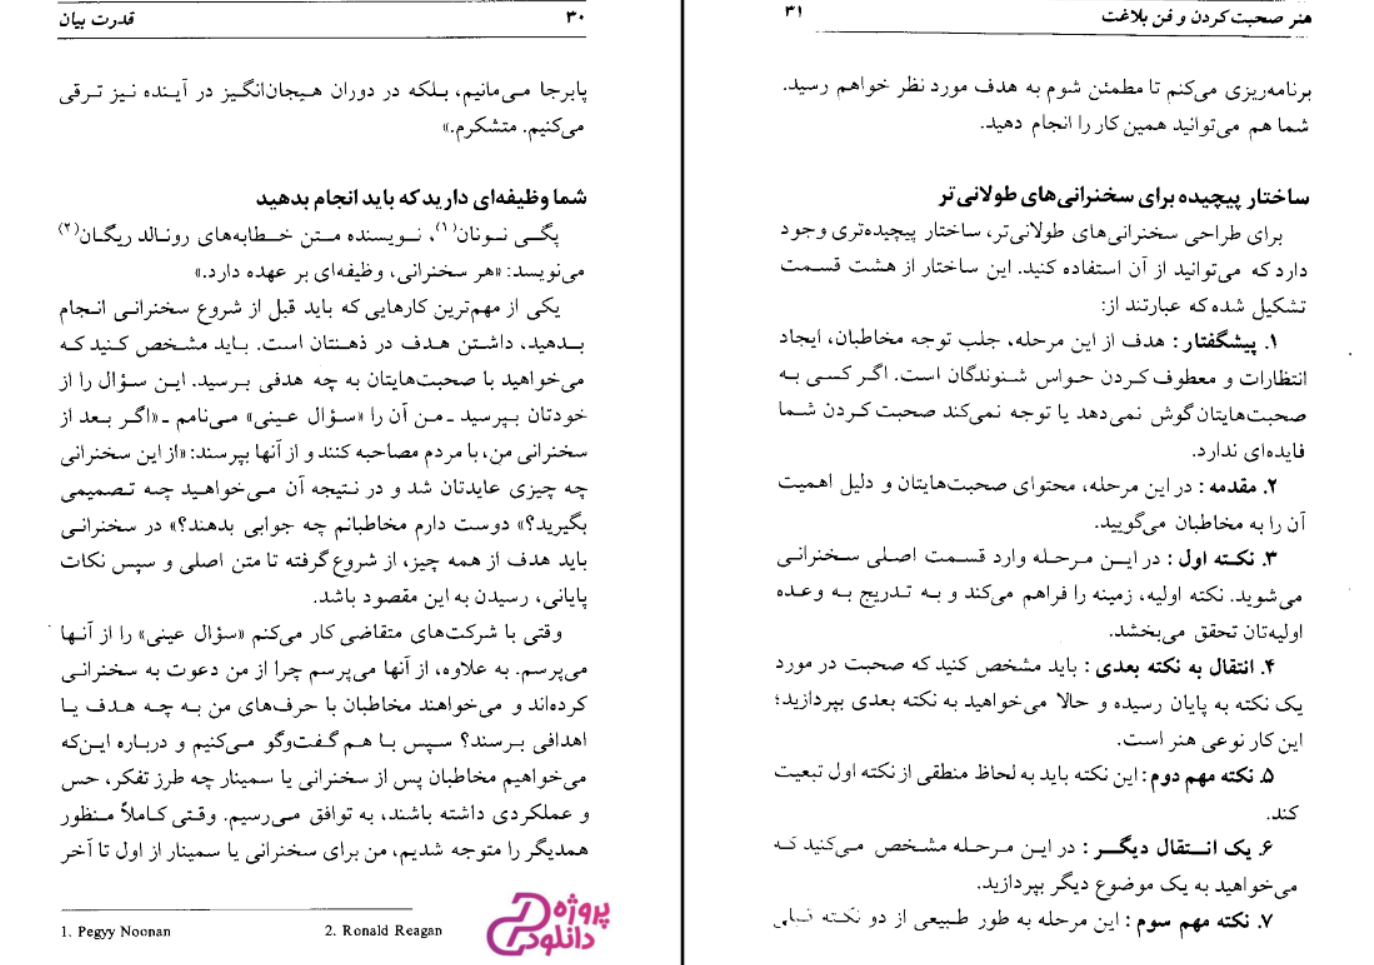 ۳۰ قدرت بیان
پابرجا می‌مانیم، بلکه در دوران هیجان‌انگیز در آینده نیز ترقی
می‌کنیم. متشکرم.»
شما وظیفه‌ای دارید که باید انجام بدهید
پگی نونان(۱)، نویسنده متن خطابه‌های رونالد ریگان(۲)
می‌نویسد: «هر سخنرانی، وظیفه‌ای بر عهده دارد.»
یکی از مهم‌ترین کارهایی که باید قبل از شروع سخنرانی انجام
بدهید، داشتن هدف در ذهنتان است. باید مشخص کنید که
می‌خواهید با صحبت‌هایتان به چه هدفی برسید. این سؤال را از
خودتان بپرسید ـ من آن را «سؤال عینی» می‌نامم ـ «اگر بعد از
سخنرانی من، با مردم مصاحبه کنند و از آنها بپرسند: «از این سخنرانی
چه چیزی عایدتان شد و در نتیجه آن می‌خواهید چه تصمیمی
بگیرید؟» دوست دارم مخاطبانم چه جوابی بدهند؟» در سخنرانی
باید هدف از همه چیز، از شروع گرفته تا متن اصلی و سپس نکات
پایانی، رسیدن به این مقصود باشد.
وقتی با شرکت‌های متقاضی کار می‌کنم «سؤال عینی» را از آنها
می‌پرسم. به علاوه، از آنها می‌پرسم چرا از من دعوت به سخنرانی
کرده‌اند و می‌خواهند مخاطبان با حرف‌های من به چه هدف یا
اهدافی برسند؟ سپس با هم گفت‌وگو می‌کنیم و درباره این‌که
می‌خواهیم مخاطبان پس از سخنرانی یا سمینار چه طرز تفکر، حس
و عملکردی داشته باشند، به توافق می‌رسیم. وقتی کاملاً منظور
همدیگر را متوجه شدیم، من برای سخنرانی یا سمینار از اول تا آخر
1. Pegyy Noonan 2. Ronald Reagan
پروژه
دانلود
هنر صحبت کردن و فن بلاغت ۳۱
برنامه‌ریزی می‌کنم تا مطمئن شوم به هدف مورد نظر خواهم رسید.
شما هم می‌توانید همین کار را انجام دهید.
ساختار پیچیده برای سخنرانی‌های طولانی‌تر
برای طراحی سخنرانی‌های طولانی‌تر، ساختار پیچیده‌تری وجود
دارد که می‌توانید از آن استفاده کنید. این ساختار از هشت قسمت
تشکیل شده که عبارتند از:
۱. پیشگفتار : هدف از این مرحله، جلب توجه مخاطبان، ایجاد
انتظارات و معطوف کردن حواس شنوندگان است. اگر کسی به
صحبت‌هایتان گوش نمی‌دهد یا توجه نمی‌کند صحبت کردن شما
فایده‌ای ندارد.
۲. مقدمه : در این مرحله، محتوای صحبت‌هایتان و دلیل اهمیت
آن را به مخاطبان می‌گویید.
۳. نکته اول : در این مرحله وارد قسمت اصلی سخنرانی
می‌شوید. نکته اولیه، زمینه را فراهم می‌کند و به تدریج به وعده
اولیه‌تان تحقق می‌بخشد.
۴. انتقال به نکته بعدی : باید مشخص کنید که صحبت در مورد
یک نکته به پایان رسیده و حالا می‌خواهید به نکته بعدی بپردازید؛
این کار نوعی هنر است.
۵. نکته مهم دوم : این نکته باید به لحاظ منطقی از نکته اول تبعیت
کند.
۶. یک انتقال دیگر : در این مرحله مشخص می‌کنید که
می‌خواهید به یک موضوع دیگر بپردازید.
۷. نکته مهم سوم : این مرحله به طور طبیعی از دو نکته قبلی